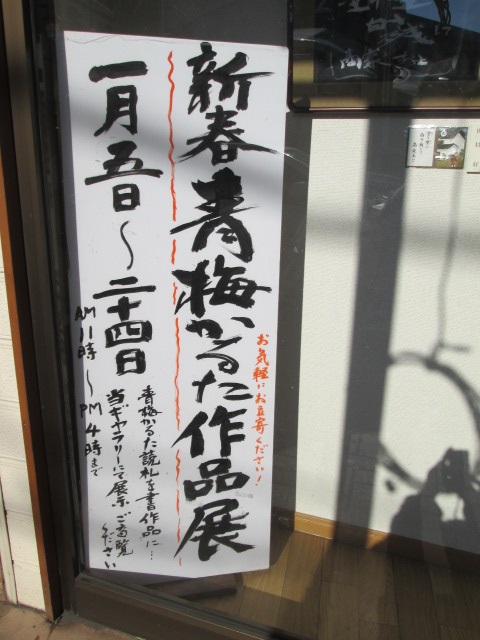 新春青梅かるた作品展
お気軽にお立寄ください!
一月五日〜二十四日
AM11時〜PM4時まで
青梅かるた読札を書作品に…
当ギャラリーにて展示ご高覧
ください